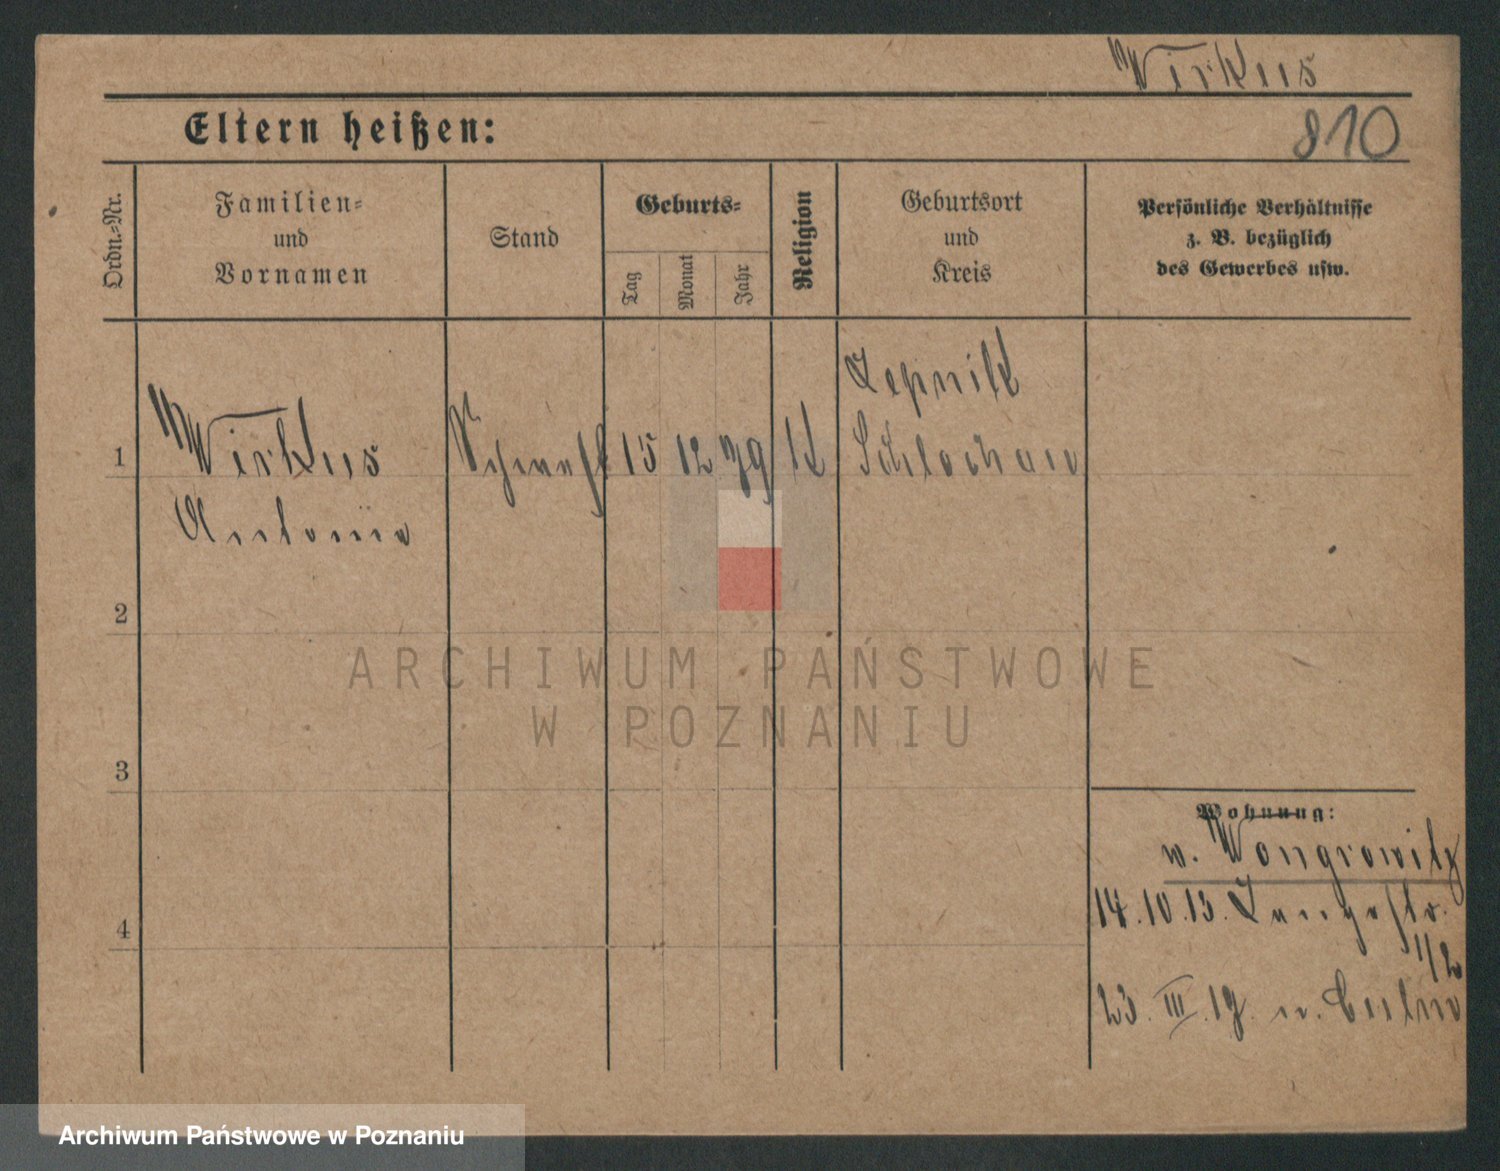 Wirkus
Eltern heißen:
810
Ordn.-Nr.
Familien-
und
Vornamen
Stand
Geburts-
Tag
Monat
Jahr
Religion
Geburtsort
und
Kreis
Persönliche Verhältnisse
z. B. bezüglich
des Gewerbes usw.
1
Wirkus
Antonie
15
12
79
K
Schlochau
2
3
4
ARCHIWUM PAŃSTWOWE
W POZNANIU
Wohnung:
v. Wongrowitz
14.10.13.
1/2
23. III. 19. n.
Archiwum Państwowe w Poznaniu